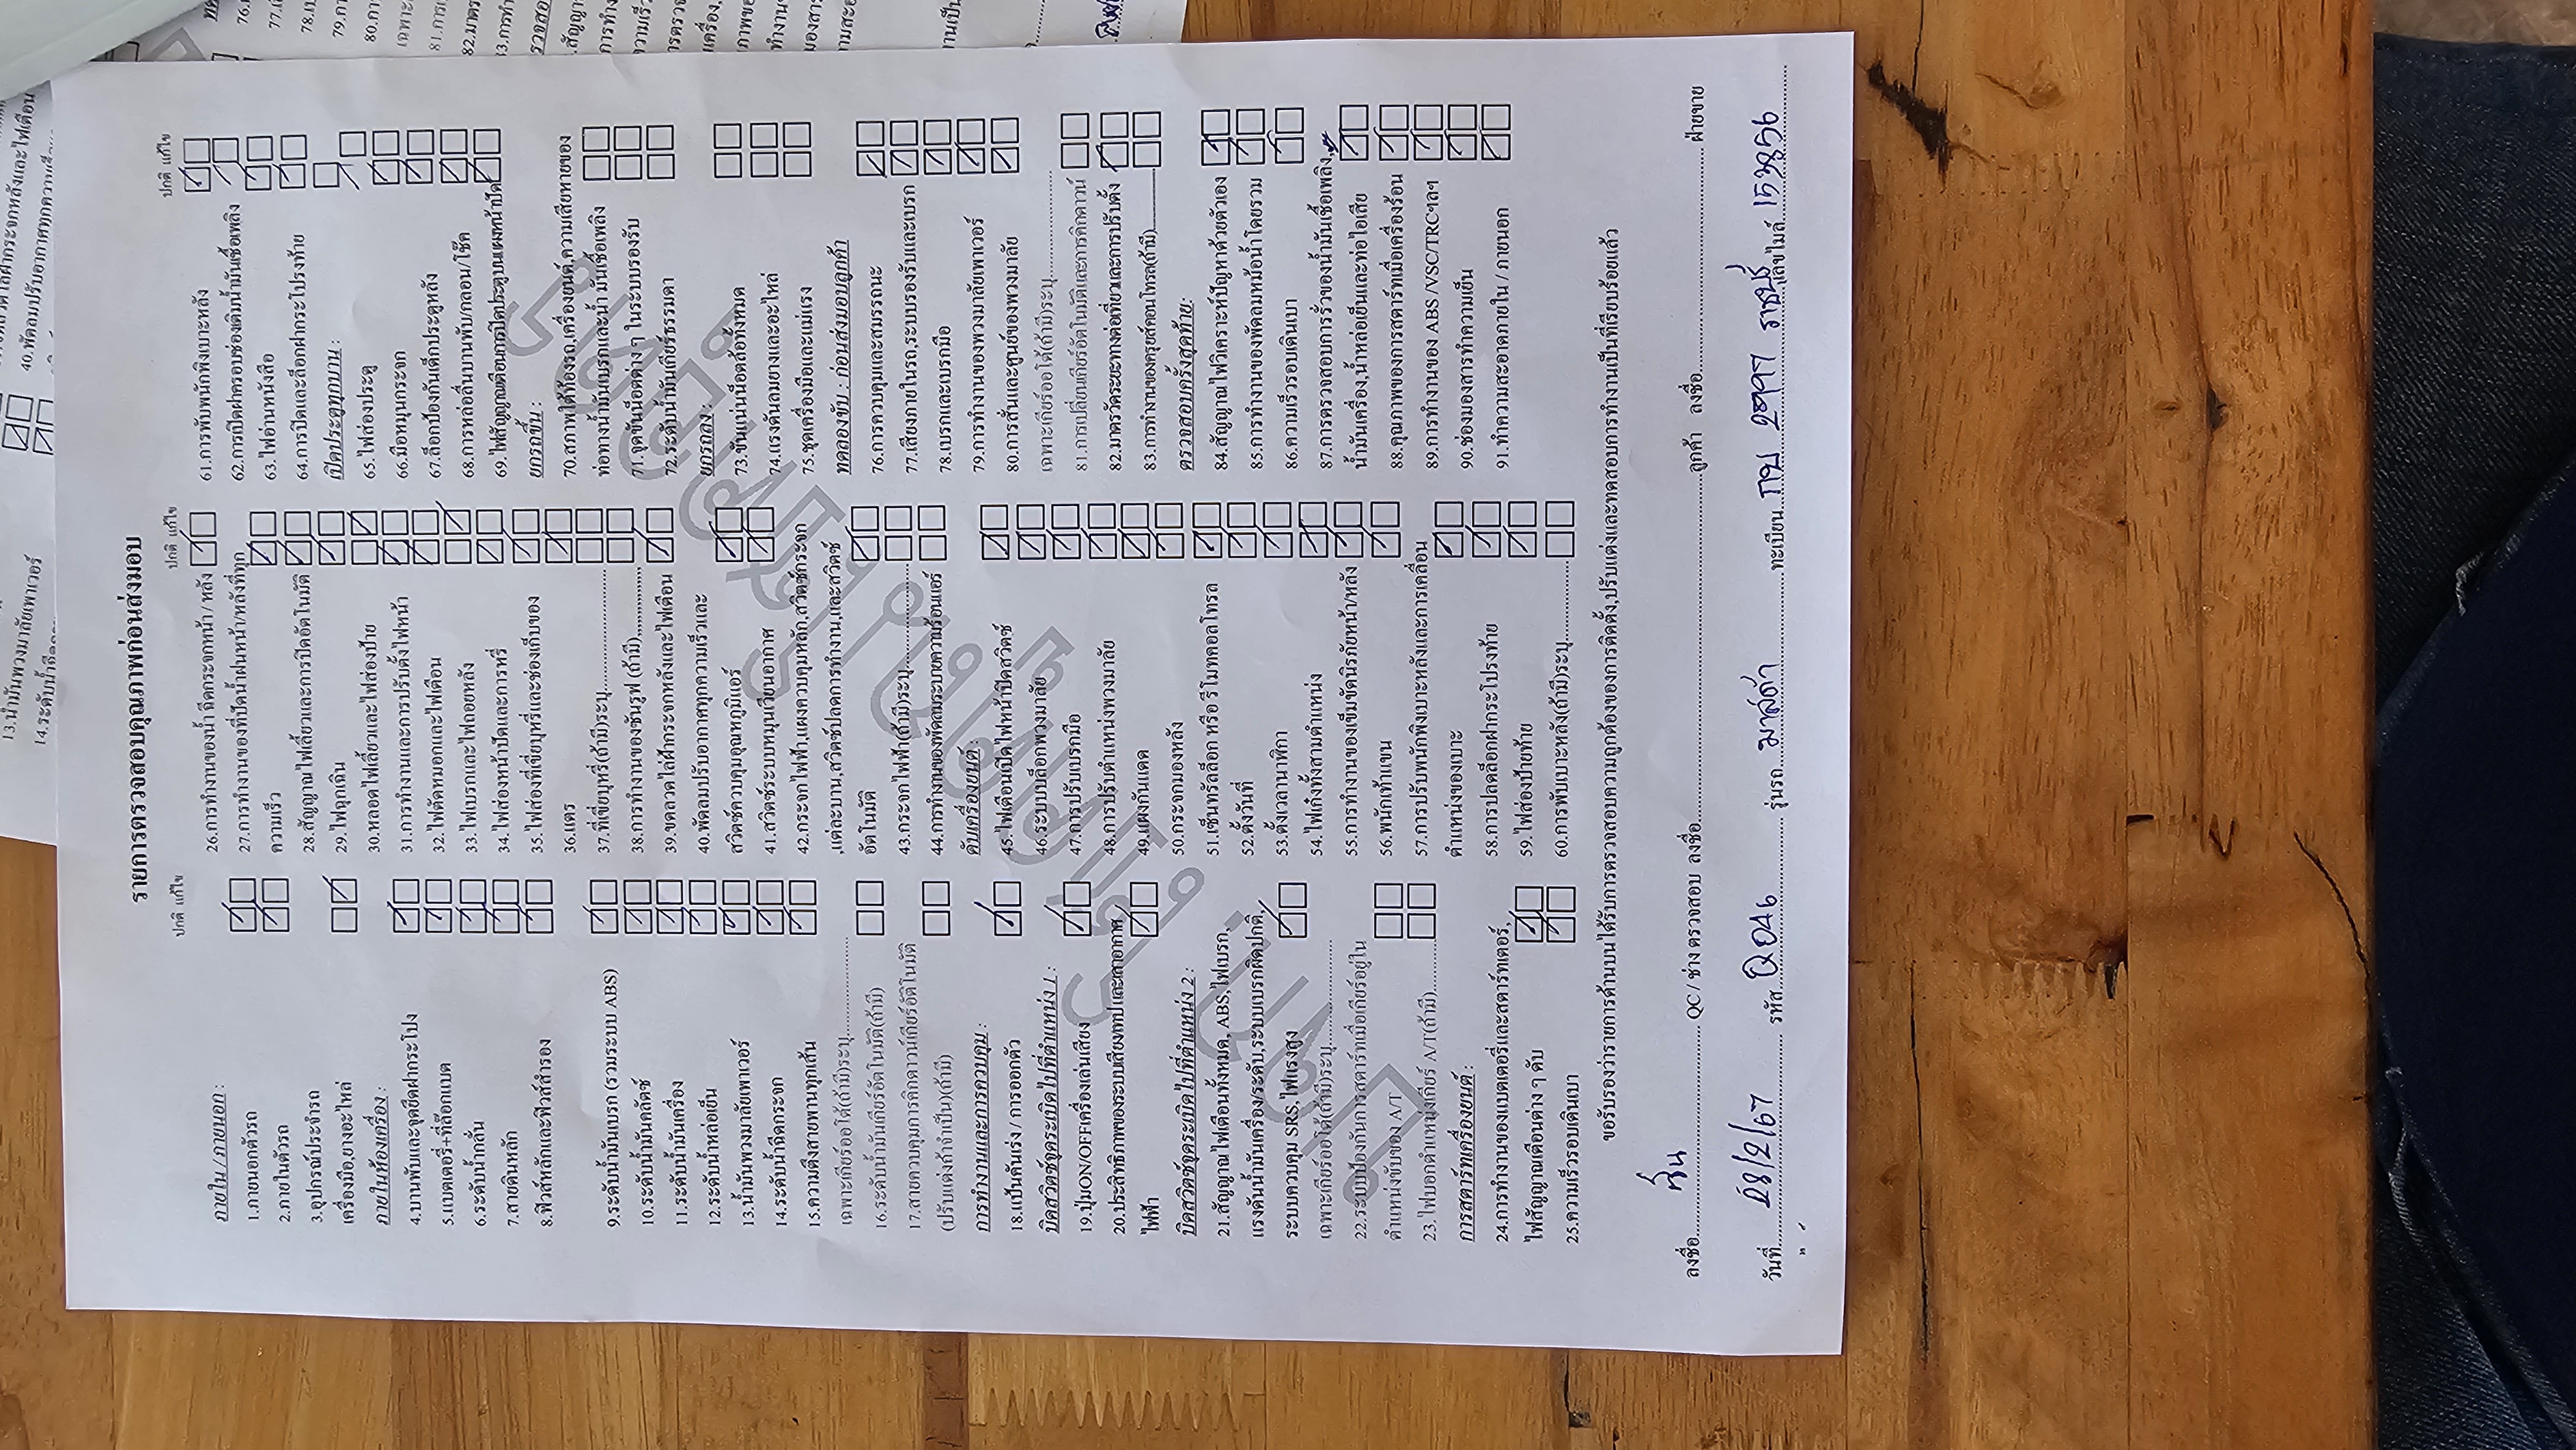 รายการตรวจสอบคุณภาพก่อนส่งมอบ
ปกติ แก้ไข
ภายใน / ภายนอก :
1.ภายนอกตัวรถ
2.ภายในตัวรถ
3.อุปกรณ์ประจำรถ
เครื่องมือ,ยางอะไหล่
ภายในห้องเครื่อง :
4.บานพับและจุดยึดฝากระโปง
5.แบตเตอรี่+ที่ล็อกแบต
6.ระดับน้ำกลั่น
7.สายดินหลัก
8.ฟิวส์หลักและฟิวส์สำรอง
9.ระดับน้ำมันเบรก (รวมระบบ ABS)
10.ระดับน้ำมันคลัตซ์
11.ระดับน้ำมันเครื่อง
12.ระดับน้ำหล่อเย็น
13.น้ำมันพวงมาลัยพาเวอร์
14.ระดับน้ำฉีดกระจก
15.ความตึงสายพานทุกเส้น
เฉพาะเกียร์ออโต้(ถ้ามี)ระบุ
16.ระดับน้ำมันเกียร์อัตโนมัติ(ถ้ามี)
17.สายควบคุมการคิกดาวน์เกียร์อัติโนมัติ
(ปรับแต่งถ้าจำเป็น)(ถ้ามี)
การทำงานและการควบคุม :
18.แป้นคันเร่ง / การออกตัว
บิดสวิตซ์จุดระเบิดไปที่ตำแหน่ง 1 :
19.ปุ่มON/OFFเครื่องเล่นเสียง
20.ประสิทธิภาพของระบบเสียงเทปและเสาอากาศ
ไฟฟ้า
บิดสวิตซ์จุดระเบิดไปที่ตำแหน่ง 2 :
21.สัญญาณไฟเตือนทั้งหมด, ABS,ไฟเบรก,
แรงดันน้ำมันเครื่อง/ระดับ,ระบบเบรกผิดปกติ,
ระบบควบคุม SRS,ไฟแรงสูง
เฉพาะเกียร์ออโต้(ถ้ามี)ระบุ
22.ระบบป้องกันการสตาร์ทเมื่อเกียร์อยู่ใน
ตำแหน่งขับของ A/T
23.ไฟบอกตำแหน่งเกียร์ A/T(ถ้ามี)
การสตาร์ทเครื่องยนต์ :
24.การทำงานของแบตเตอรี่และสตาร์ทเตอร์,
ไฟสัญญาณเตือนต่าง ๆ ดับ
25.ความเร็วรอบเดินเบา
ปกติ แก้ไข
26.การทำงานของน้ำ ฉีดกระจกหน้า / หลัง
27.การทำงานของที่ปัดน้ำฝนหน้า/หลังที่ทุก
ความเร็ว
28.สัญญาณไฟเลี้ยวและการปิดอัตโนมัติ
29.ไฟฉุกเฉิน
30.หลอดไฟเลี้ยวและไฟส่องป้าย
31.การทำงานและการปรับตั้งไฟหน้า
32.ไฟตัดหมอกและไฟเตือน
33.ไฟเบรกและไฟถอยหลัง
34.ไฟส่องหน้าปัดและการหรี่
35.ไฟส่องที่เขี่ยบุหรี่และช่องเก็บของ
36.แตร
37.ที่เขี่ยบุหรี่(ถ้ามี)ระบุ
38.การทำงานของซันรูฟ (ถ้ามี)
39.ขดลวดไล่ฝ้ากระจกหลังและไฟเตือน
40.พัดลมปรับอากาศทุกความเร็วและ
สวิตซ์ควบคุมอุณหภูมิแอร์
41.สวิตซ์ระบบหมุนเวียนอากาศ
42.กระจกไฟฟ้า,แผงควบคุมหลัก,สวิตซ์กระจก
,แต่ละบาน,สวิตซ์ปลดการทำงาน,และสวิตซ์
อัตโนมัติ
43.กระจกไฟฟ้า(ถ้ามี)ระบุ
44.การทำงานของพัดลมระบายความร้อนแอร์
ดับเครื่องยนต์ :
45.ไฟเตือนเปิดไฟหน้าปิดสวิตซ์
46.ระบบบล็อกพวงมาลัย
47.การปรับเบรกมือ
48.การปรับตำแหน่งพวงมาลัย
49.แผงกันแดด
50.กระจกมองหลัง
51.เซ็นทรัลล็อก หรือ รีโมทคอลโทรล
52.ตั้งวันที่
53.ตั้งเวลานาฬิกา
54.ไฟเก๋งทั้งสามตำแหน่ง
55.การทำงานของเข็มขัดนิรภัยหน้า/หลัง
56.พนักเท้าแขน
57.การปรับพนักพิงเบาะหลังและการเคลื่อน
ตำแหน่งของเบาะ
58.การปลดล็อกฝากระโปรงท้าย
59.ไฟส่องป้ายท้าย
60.การพับเบาะหลัง(ถ้ามี)ระบุ
ปกติ แก้ไข
61.การพับพนักพิงเบาะหลัง
62.การเปิดฝาครอบช่องเติมน้ำมันเชื้อเพลิง
63.ไฟอ่านหนังสือ
64.การปิดและล็อกฝากระโปรงท้าย
เปิดประตูทุกบาน :
65.ไฟส่องประตู
66.มือหมุนกระจก
67.ล็อกป้องกันเด็กประตูหลัง
68.การหล่อลื่นบานพับ/กลอน/โช๊ค
69.ไฟสัญญาณเตือนการปิดประตูบนแผงหน้าปัด
ยกรถขึ้น :
70.สภาพใต้ท้องรถ,เครื่องยนต์,ความเสียหายของ
ท่อทางน้ำมันเบรกและน้ำ มันเชื้อเพลิง
71.จุดขันน็อตต่าง ๆ ในระบบรองรับ
72.ระดับน้ำมันเกียร์ธรรมดา
ยกรถลง :
73.ขันแน่นน็อตล้อทั้งหมด
74.แรงดันลมยางและอะไหล่
75.ชุดเครื่องมือและแม่แรง
ทดลองขับ : ก่อนส่งมอบลูกค้า
76.การควบคุมและสมรรถนะ
77.เสียงภายในรถ,ระบบรองรับและเบรก
78.เบรกและเบรกมือ
79.การทำงานของพวงมาลัยเพาเวอร์
80.การสั่นและศูนย์ของพวงมาลัย
เฉพาะเกียร์ออโต้(ถ้ามี)ระบุ
81.การเปลี่ยนเกียร์อัตโนมัติและการคิกดาวน์
82.มาตรวัดระยะทางต่อเที่ยวและการปรับตั้ง
83.การทำงานของครูยส์คอนโทรล(ถ้ามี)
ตรวจสอบครั้งสุดท้าย:
84.สัญญาณไฟวิเคราะห์ปัญหาด้วยตัวเอง
85.การทำงานของพัดลมหม้อน้ำโดยรวม
86.ความเร็วรอบเดินเบา
87.การตรวจสอบการรั่วของน้ำมันเชื้อเพลิง,
น้ำมันเครื่อง,น้ำหล่อเย็นและท่อไอเสีย
88.คุณภาพของการสตาร์ทเมื่อเครื่องร้อน
89.การทำงานของ ABS /VSC/TRCฯลฯ
90.ช่องมองสารทำความเย็น
91.ทำความสะอาดภายใน / ภายนอก
ขอรับรองว่ารายการด้านบนได้รับการตรวจสอบความถูกต้องของการติดตั้ง,ปรับแต่งและทดสอบการทำงานเป็นที่เรียบร้อยแล้ว
ลงชื่อ QC / ช่างตรวจสอบ ลงชื่อ ลูกค้า ลงชื่อ ฝ่ายขาย
วันที่ 28/2/67 รหัส Q046 รุ่นรถ มาสด้า ทะเบียน กบ 2897 ราชบุรี เลขไมล์ 153856
13.น้ำมันพวงมาลัยพาเวอร์